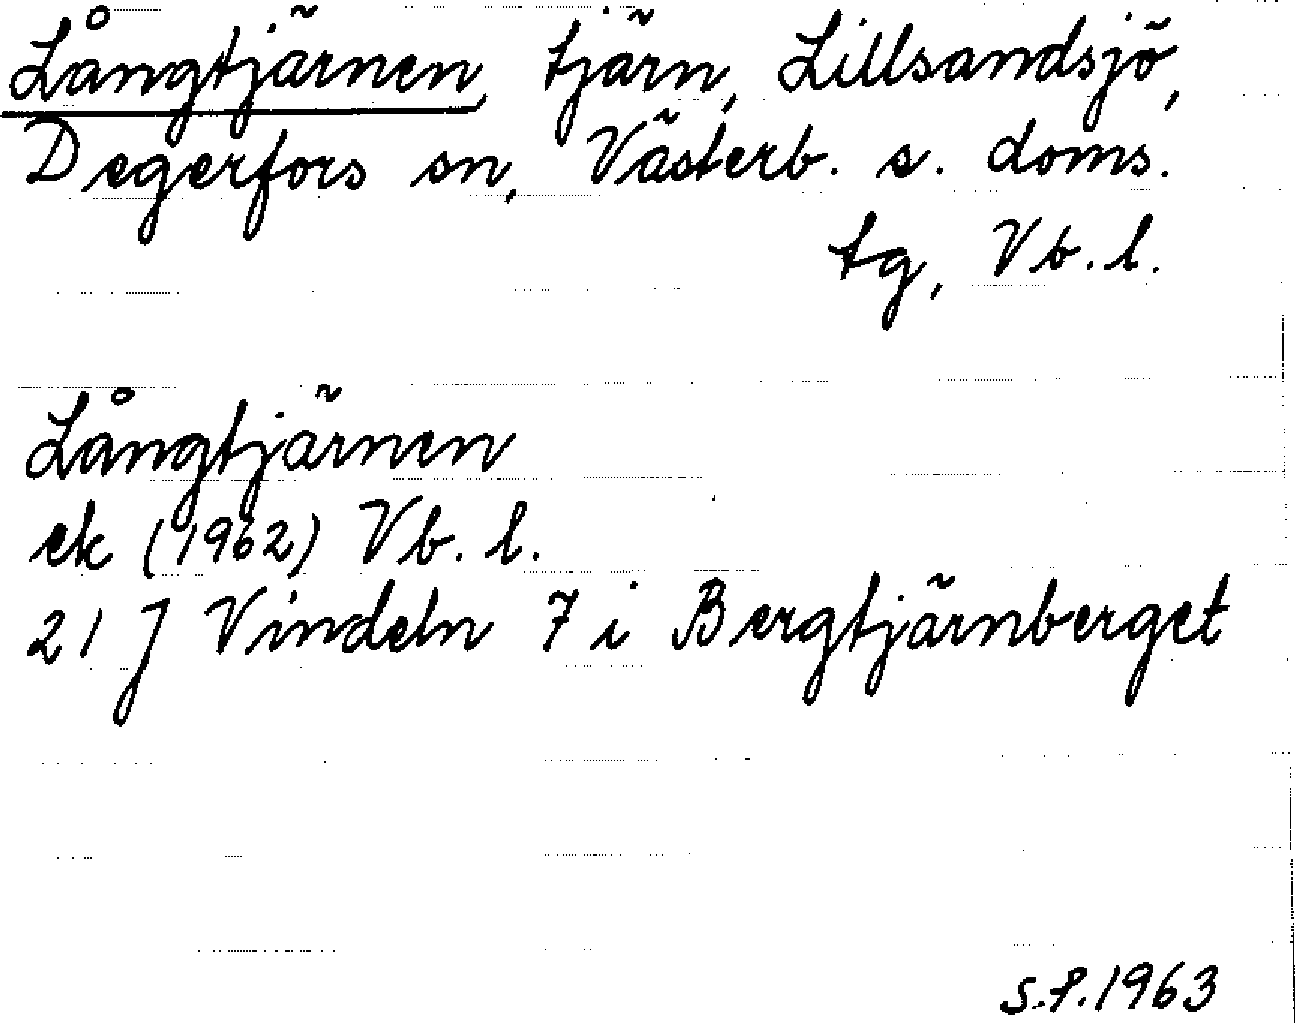 Långtjärnen, tjärn, Lillsandsjö,
Degerfors sn, Västerb. s. doms.
tg, Vb. l.
Långtjärnen
ek (1962) Vb. l.
21 J Vindeln 7 i Bergtjärnberget
S.P. 1963